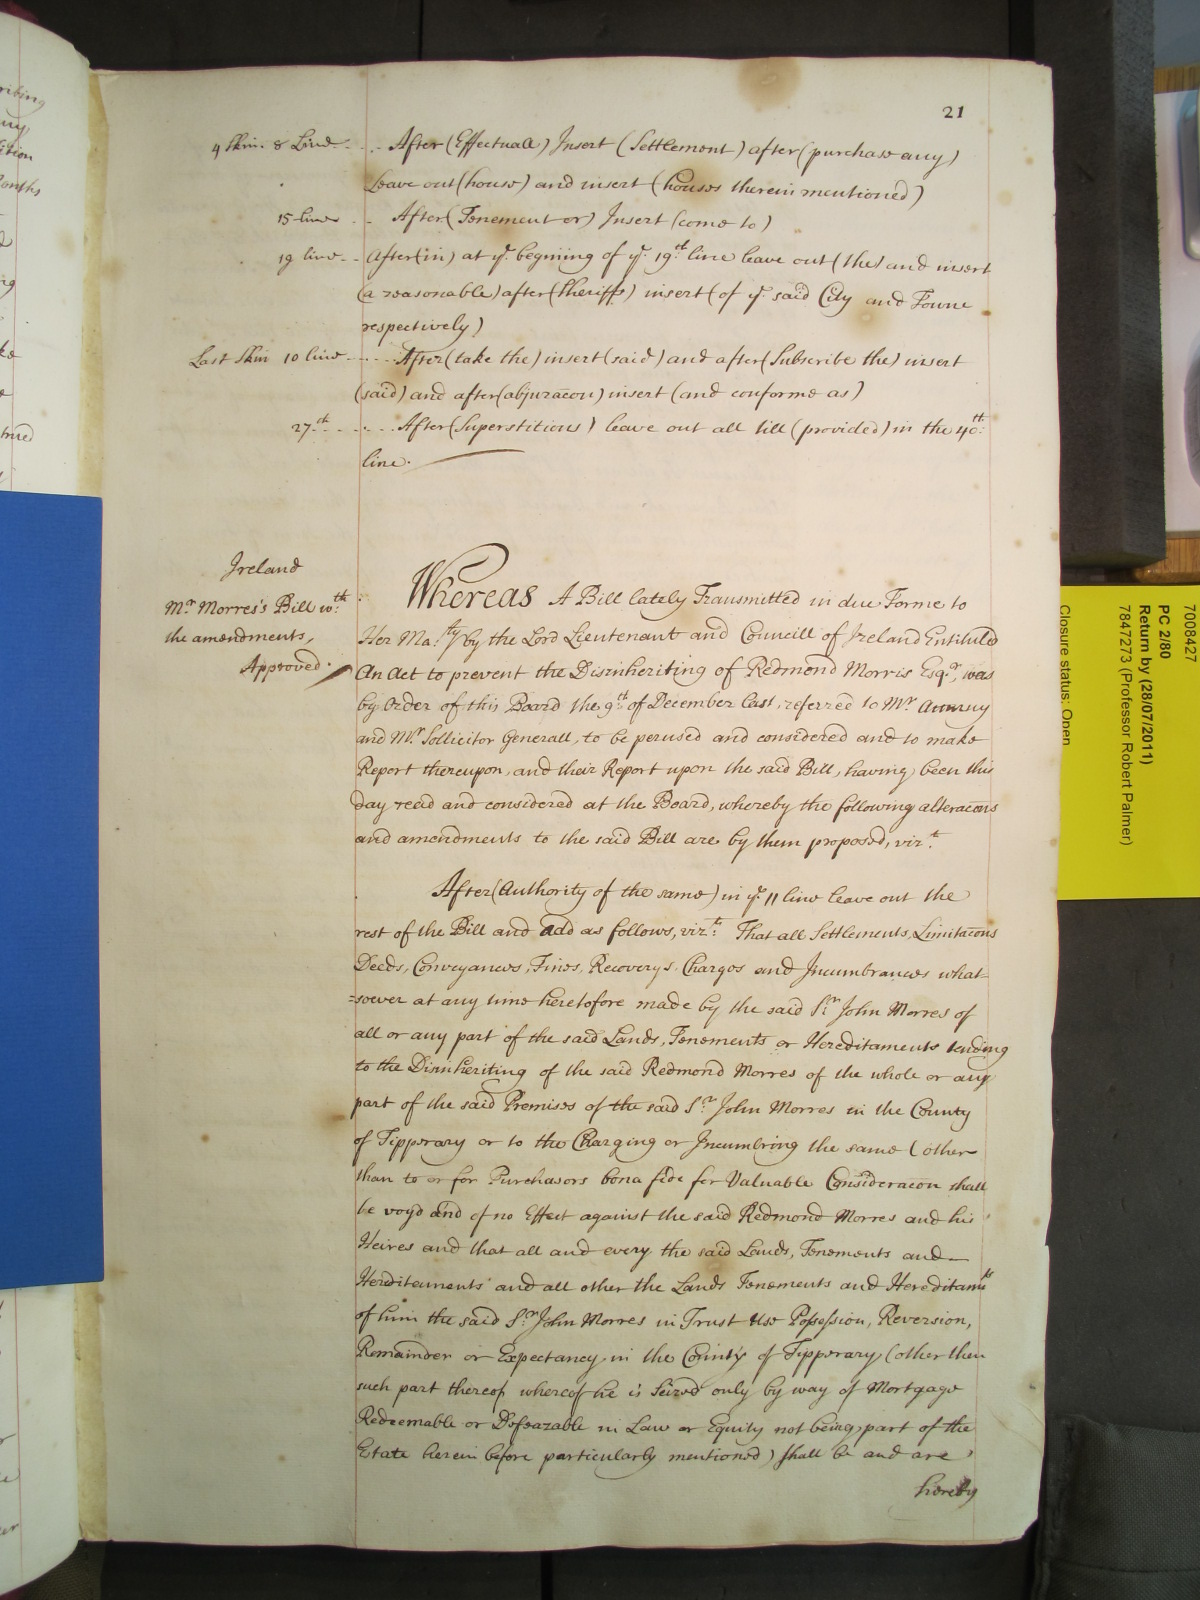 21
4 Skin. 8 Line. - .. After (Effectuall) Insert (Settlement) after (purchase any)
Leave out (house) and insert (houses therein mentioned)
15 line .. After (Tenement or) Insert (come to)
19 line - - After (in) at ye. begniing of ye. 19th. line leave out (the) and insert
(a reasonable) after (Sheriffs) insert (of ye. said City and Towne
respectively)
Last Skin 10 line - .... After (take the) insert (said) and after (Subscribe the) insert
(said) and after (abjuracōn) insert (and conforme as)
27th. - ... After (Superstitions) leave out all till (provided) in the 40th.
line.
Ireland
Mr. Morres's Bill wth.
the amendments,
Approved.
Whereas A Bill lately Transmitted in due Forme to
Her Ma:ty by the Lord Lieutenant and Councill of Ireland Entituled
An Act to prevent the Disinheriting of Redmond Morris Esqr., was
by Order of this Board the 9th. of December last, referred to Mr. Attorney
and Mr. Sollicitor Generall, to be perused and considered and to make
Report thereupon, and their Report upon the said Bill, having been this
day read and considered at the Board, whereby the following alteracōns
and amendments to the said Bill are by them proposed, vizt.
After (Authority of the same) in ye. 11 line leave out the
rest of the Bill and add as follows, vizt. That all Settlements, Limitacōns
Deeds, Conveyances, Fines, Recoverys, Charges and Incumbrances what=
=soever at any time heretofore made by the said Sr. John Morres of
all or any part of the said Lands, Tenements or Hereditaments tending
to the Disinheriting of the said Redmond Morres of the whole or any
part of the said Premises of the said Sr. John Morres in the County
of Tipperary or to the Charging or Incumbring the same (other
than to or for Purchasors bona fide for Valuable Consideracōn shall
be voyd and of no Effect against the said Redmond Morres and his
Heires and that all and every the said Lands, Tenements and
Hereditaments and all other the Lands Tenements and Hereditamts
of him the said Sr. John Morres in Trust Use Possession, Reversion,
Remainder or Expectancy in the County of Tipperary (other then
such part thereof whereof he is Seized only by way of Mortgage
Redeemable or Defeazable in Law or Equity not being part of the
Estate herein before particularly mentioned) shall be and are
hereby
7008427
PC 2/80
Return by (28/07/2011)
7847273 (Professor Robert Palmer)
Closure status: Open